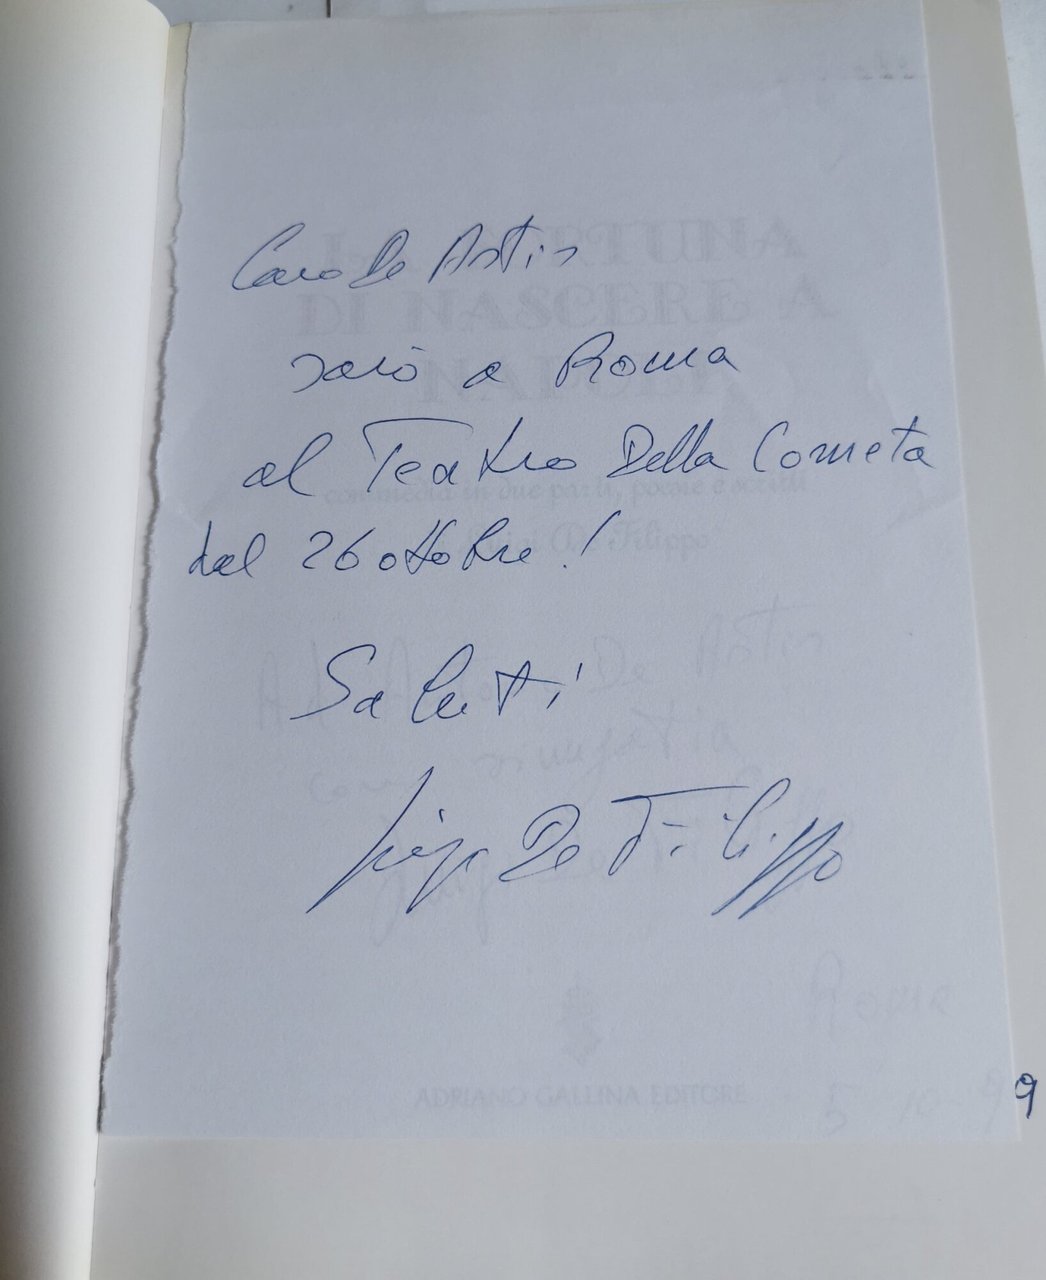 Caro De Astis
sarò a Roma
al Teatro Della Cometa
dal 26 ottobre!
Saluti
Luigi De Filippo
LA FORTUNA
DI NASCERE A
NAPOLI
commedia in due parti, poesie e scritti
di Luigi De Filippo
De Astis
con simpatia
Luigi De Filippo
Roma
5-10-99
ADRIANO GALLINA EDITORE